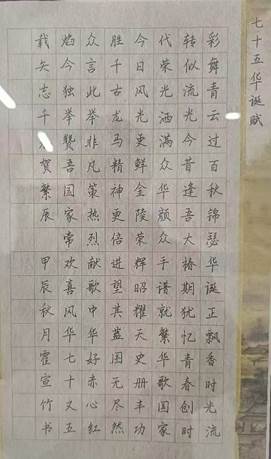 七十五华诞赋
彩舞青云过百秋锦瑟华诞正飘香时光流
转似流光今昔逢吾大椿期犹忆青春创时
代荣光洒满众华颜众手谱就繁华歌国家
今日风光更鲜金陵荣辉昭耀天史册丰功
胜千古龙马精神更倍进望其蓝图无尽然
众言此举非凡策热烈献歌中华好赤心红
焰今独举赞吾国家常欢喜风华七十又五
载矢志千贺繁辰 甲辰秋月霍宣竹书